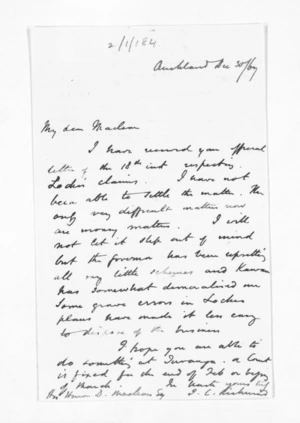 2/1/184
Auckland Dec 30/69
My dear Maclean
I have received your official
letter of the 18th inst respecting
Locke's claims. I have not
been able to settle the matter. The
only very difficult matters now
are money matters. I will
not let it slip out of mind
but the foreman has been upsetting
all my little schemes and
has somewhat demoralised me
Some grave errors in Lockes
plans have made it less easy
to dispose of the business
I hope you are able to
do something at Turanga. a Court
is fixed for the end of Feb or
of March. In haste yours
Honble D. Maclean Esq J. C. Richmond